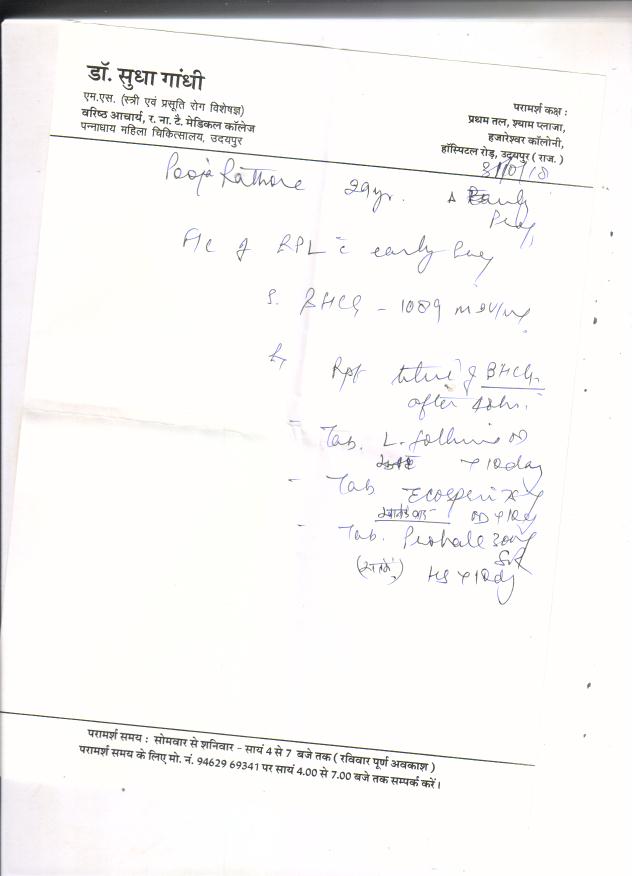 डॉ. सुधा गांधी
एम.एस. (स्त्री एवं प्रसूति रोग विशेषज्ञ)
वरिष्ठ आचार्य, र. ना. टै. मेडिकल कॉलेज
पन्नाधाय महिला चिकित्सालय, उदयपुर
परामर्श कक्ष :
प्रथम तल, श्याम प्लाजा,
हजारेश्वर कॉलोनी,
हॉस्पिटल रोड़, उदयपुर ( राज. )
Pooja Rathore 29yr. Early
Preg
of RPL c early Preg
S. BHCG - 1089
Rpt titre of BHCG
after
- Tab. L. OD
10day
- Tab Ecosprin
OD
- Tab.
SR
HS
परामर्श समय : सोमवार से शनिवार - सायं 4 से 7 बजे तक ( रविवार पूर्ण अवकाश )
परामर्श समय के लिए मो. नं. 94629 69341 पर सायं 4.00 से 7.00 बजे तक सम्पर्क करें।